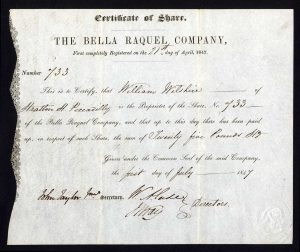 Certificate of Share.
THE BELLA RAQUEL COMPANY,
First completely Registered on the 21st day of April, 1847.
Number 733
This is to Certify, that William Wilshire of
Stratton St. Piccadilly is the Proprietor of the Share, No. 733
of the Bella Raquel Company, and that up to this day there has been paid
up, in respect of such Share, the sum of Twenty five Pounds
Given under the Common Seal of the said Company,
the first day of July 1847
John Taylor Secretary.
Directors.